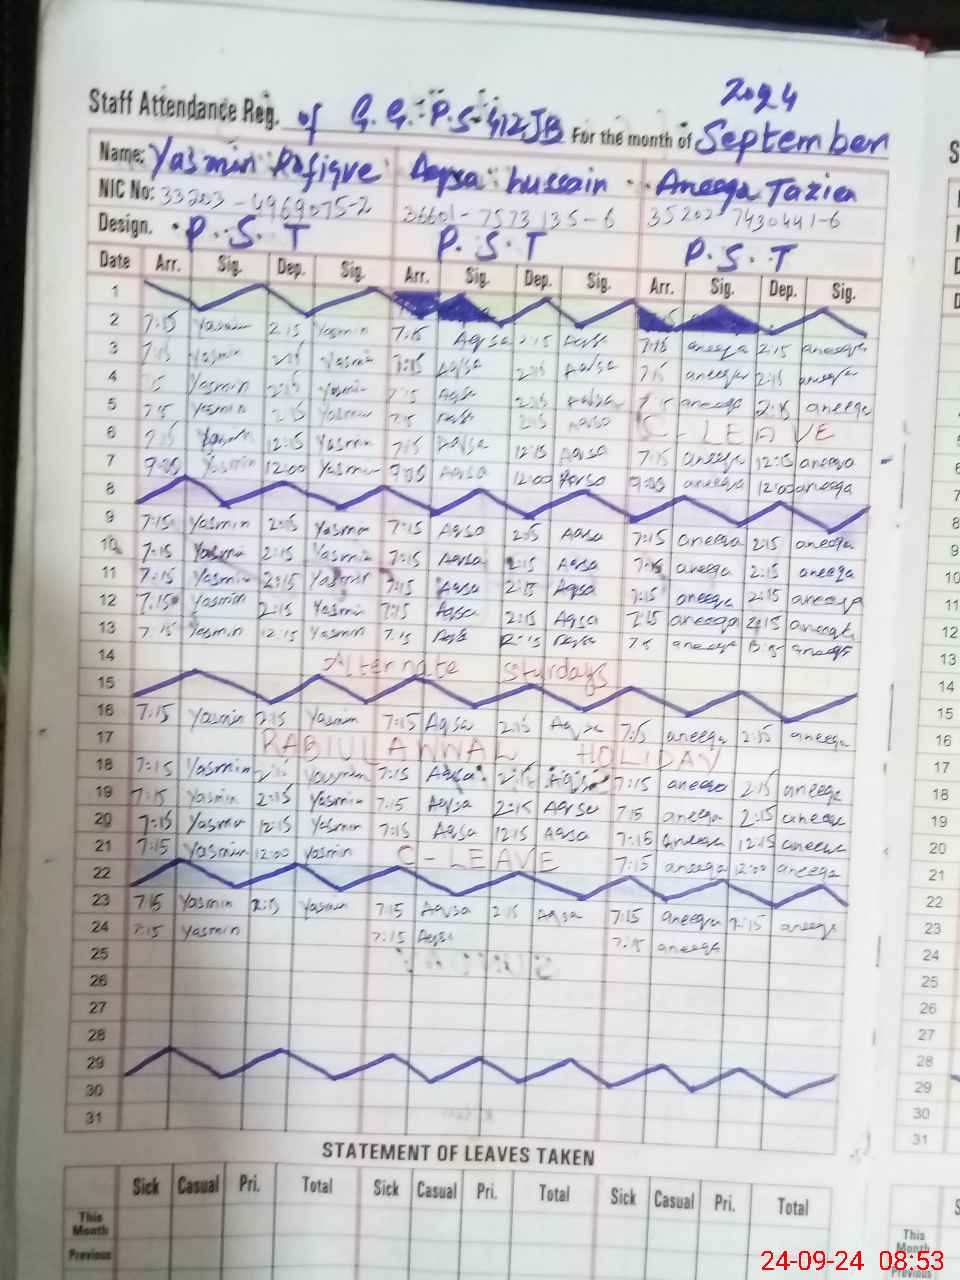 2024
Staff Attendance Reg. of G.G.P.S 412JB For the month of September
Name: Yasmin Rafique Aqsa hussain Aneeqa Tazien
NIC No: 33203-4969075-2 36601-7573135-6 35202 7430441-6
Design. P.S.T P.S.T P.S.T
Date Arr. Sig. Dep. Sig. Arr. Sig. Dep. Sig. Arr. Sig. Dep. Sig.
1
2 7:15 Yasmin 2:15 Yasmin 7:15 Aqsa 2:15 Aqsa 7:15 aneeqa 2:15 aneeqa
3 7:15 Yasmin 2:15 Yasmin 7:15 Aqsa 2:15 Aqsa 7:15 aneeqa 2:15 aneeqa
4 Yasmin 2:15 Yasmin 7:15 Aqsa 2:15 Aqsa 7:15 aneeqa 2:15 aneeqa
5 7:15 Yasmin 2:15 Yasmin 7:15 Aqsa 2:15 Aqsa C-LEAVE
6 7:15 Yasmin 12:15 Yasmin 7:15 Aqsa 12:15 Aqsa 7:15 aneeqa 12:15 aneeqa
7 7:05 Yasmin 12:00 Yasmin 7:05 Aqsa 12:00 Aqsa 7:05 aneeqa 12:00 aneeqa
8
9 7:15 Yasmin 2:15 Yasmin 7:15 Aqsa 2:15 Aqsa 7:15 aneeqa 2:15 aneeqa
10 7:15 Yasmin 2:15 Yasmin 7:15 Aqsa 2:15 Aqsa 7:15 aneeqa 2:15 aneeqa
11 7:15 Yasmin 2:15 Yasmin 7:15 Aqsa 2:15 Aqsa 7:15 aneeqa 2:15 aneeqa
12 7:15 Yasmin 2:15 Yasmin 7:15 Aqsa 2:15 Aqsa 7:15 aneeqa 2:15 aneeqa
13 7:15 Yasmin 12:15 Yasmin 7:15 Aqsa 12:15 Aqsa 7:15 aneeqa 12:15 aneeqa
14 Alternate Sturdays
15
16 7:15 Yasmin 2:15 Yasmin 7:15 Aqsa 2:15 Aqsa 7:15 aneeqa 2:15 aneeqa
17 RABIUL AWWAL HOLIDAY
18 7:15 Yasmin 2:15 Yasmin 7:15 Aqsa 2:15 Aqsa 7:15 aneeqa 2:15 aneeqa
19 7:15 Yasmin 2:15 Yasmin 7:15 Aqsa 2:15 Aqsa 7:15 aneeqa 2:15 aneeqa
20 7:15 Yasmin 12:15 Yasmin 7:15 Aqsa 12:15 Aqsa 7:15 aneeqa 12:15 aneeqa
21 7:15 Yasmin 12:00 Yasmin C-LEAVE 7:15 aneeqa 12:00 aneeqa
22
23 7:15 Yasmin 2:15 Yasmin 7:15 Aqsa 2:15 Aqsa 7:15 aneeqa 2:15 aneeqa
24 7:15 Yasmin 7:15 Aqsa 7:15 aneeqa
25
26
27
28
29
30
31
STATEMENT OF LEAVES TAKEN
Sick Casual Pri. Total Sick Casual Pri. Total Sick Casual Pri. Total
This Month
Previous
24-09-24 08:53